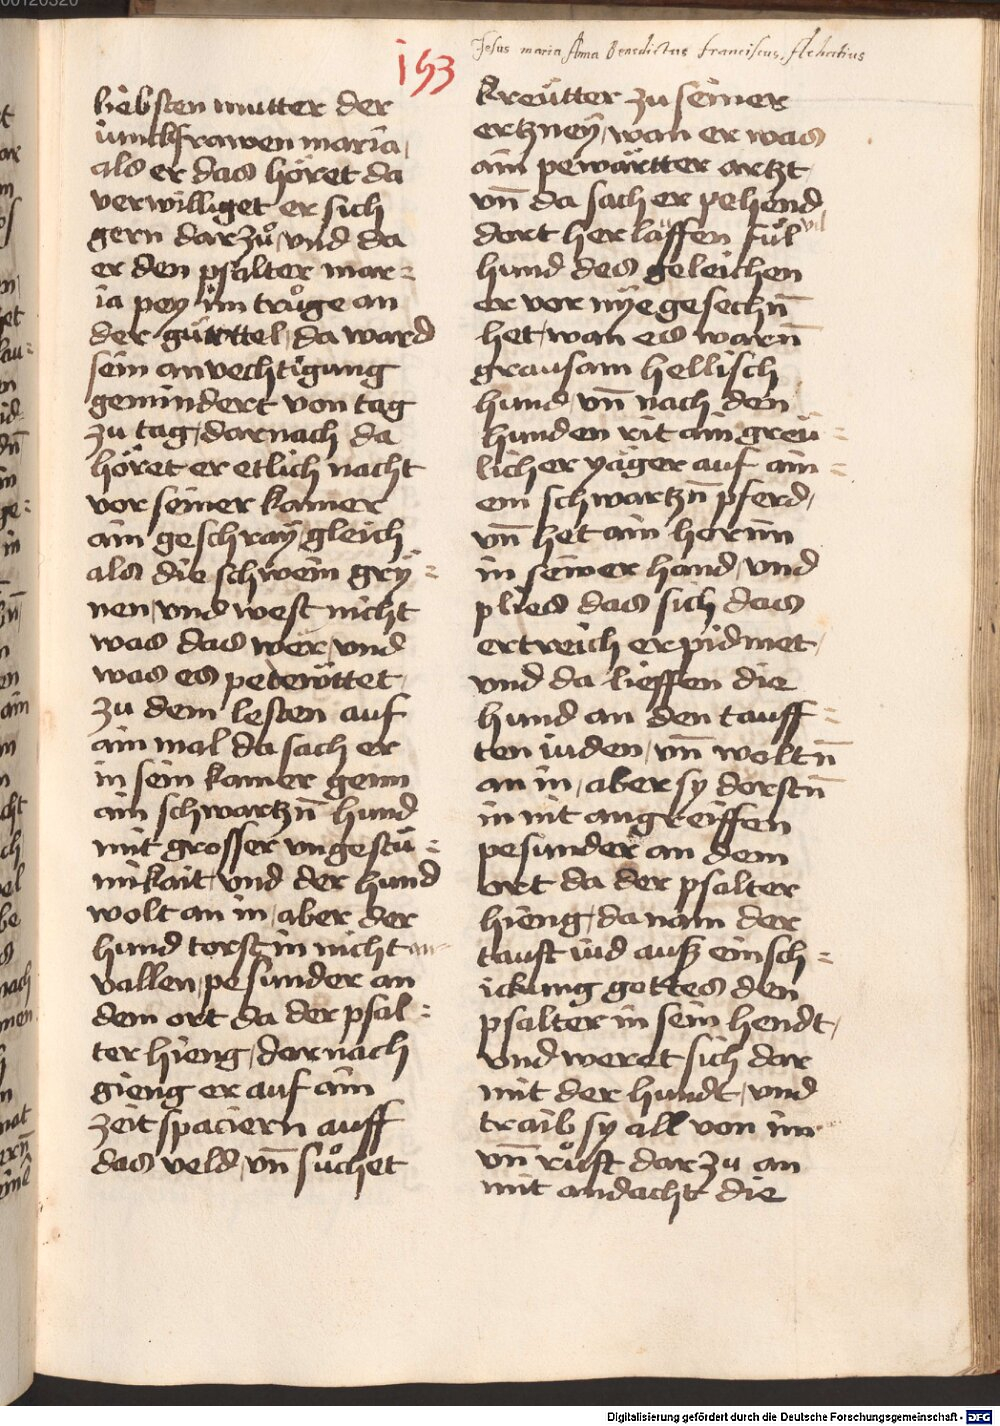 153
Jesus maria Anna Benedictus franciscus.
liebsten mutter der
iunckfrawen maria,
als er das höret da
verwilliget er sich
gern darzů, vnd da
er den psalter mar=
ia pey im truͦge an
der gürttel, da ward
sein anvechtigung
gemindert von tag
zu tag, darnach da
höret er etlich nacht
vor seiner kamer
ain geschray gleich
als die schwein gry=
nen, vnd west nicht
was das wer, vnd
was es pedewttet
zu dem lesten auf
ain mal da sach er
in sein kamer genn
ain schwartzn̄ hund
mit grosser vngestü=
mikait, vnd der hund
wolt an in, aber der
hund torst in nicht an
vallen, pesunder an
dem ort da der psal=
ter hieng, darnach
gieng er auf ain
zeit spaciern auff
das veld, vn̄ suͦchet
kreütter zu seiner
ertzney, wan er was
ain pewärtter artzt,
vn̄ da sach er pehend
dort her lauffen fůl vil
hund des geleichen
er vor nye gesechn̄
het, wan es warn̄
grausam hellisch
hund, vn̄ nach den
hunden rit ain greü=
licher yäger auf ain=
em schwartzn̄ pferd,
vn̄ het ain horinn
in seiner hand, vnd
plies das sich das
ertreich erpidmet,
vnd da lieffen die
hund an den tauff=
ten iuden, vn̄ woltn̄
an in, aber sy dorstn̄
in nit angreiffen
pesunder an dem
ort da der psalter
hieng, da nam der
tauft iud auß einsch=
ickung gottes den
psalter in sein hendt,
vnd weret sich dar
mit der hundt, vnd
traib sy all von im
vn̄ ruͦft darzu an
mit andacht die
Digitalisierung gefördert durch die Deutsche Forschungsgemeinschaft - DFG